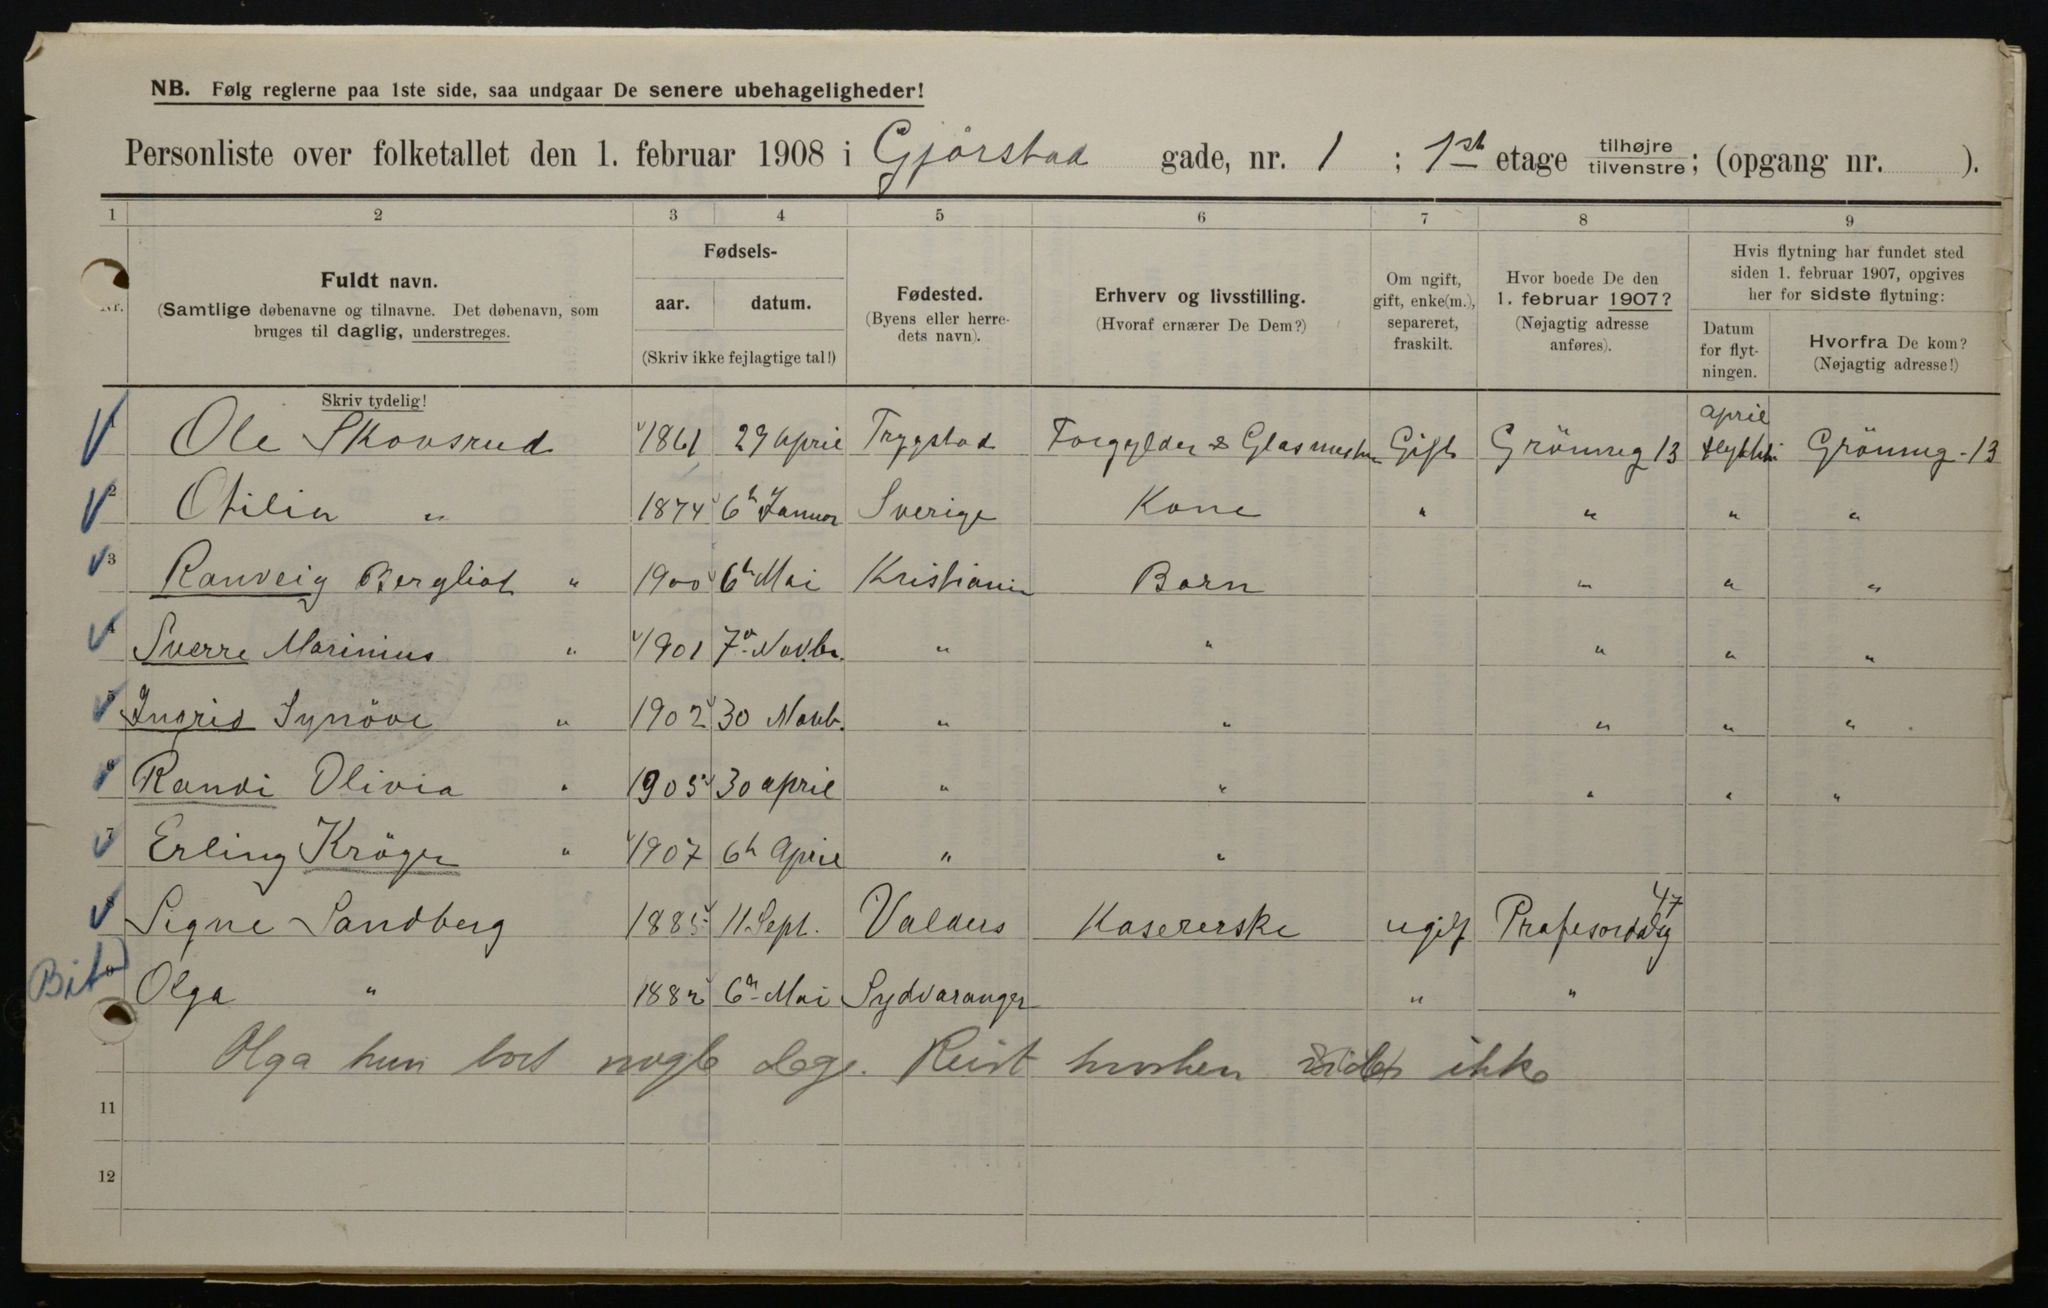 NB. Følg reglerne paa 1ste side, saa undgaar De senere ubehageligheder!
Personliste over folketallet den 1. februar 1908 i Gjörstad gade, nr. 1 ; 1st etage tilhøjre tilvenstre; (opgang nr. ).
1 2 3 4 5 6 7 8 9
Nr.
Fuldt navn.
(Samtlige døbenavne og tilnavne. Det døbenavn, som
bruges til daglig, understreges.
Skriv tydelig!
Fødsels-
aar. datum.
(Skriv ikke fejlagtige tal!)
Fødested.
(Byens eller herre-
dets navn).
Erhverv og livsstilling.
(Hvoraf ernærer De Dem?)
Om ugift,
gift, enke(m.),
separeret,
fraskilt.
Hvor boede De den
1. februar 1907?
(Nøjagtig adresse
anføres).
Hvis flytning har fundet sted
siden 1. februar 1907, opgives
her for sidste flytning:
Datum
for flyt-
ningen.
Hvorfra De kom?
(Nøjagtig adresse!)
1 Ole Skovsrud 1861 29 April Trygstad Forgylder & Glasmester Gift Grönneg 13 April Grönneg - 13
2 Otilia " 1874 6 Januar Sverige Kone " " " "
3 Ranveig Bergliot " 1900 6 Mai Kristiania Barn " " "
4 Sverre Marinius " 1901 7 Novbr. " " " " "
5 Ingrid Synöve " 1902 30 Novb. " " " " "
6 Randi Olivia " 1905 30 April " " " " "
7 Erling Kröger " 1907 6 April " "
8 Signe Sandberg 1885 11 Sept. Valders Kasererske ugift Profesordalsg 47
9 Olga " 1882 6 Mai Sydvaranger " "
Olga hun bort nogle dage. Reist hvorhen vides ikke
11
12